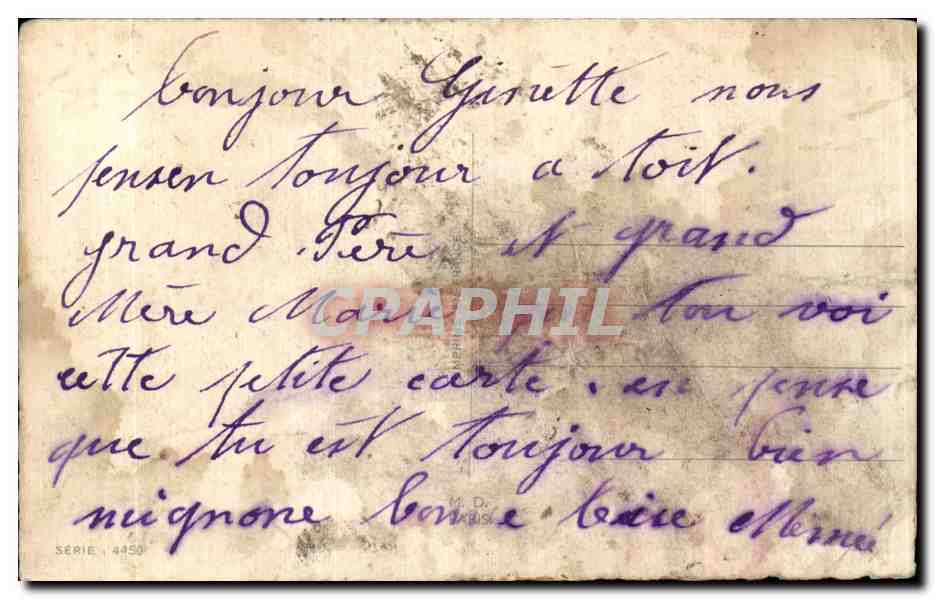 bonjour Ginette nous
penson toujour a toit.
grand Père et grand
Mère Marie ton voi
cette petite carte. en pense
que tu est toujour bien
mignone bonne bise Mémé
CPRAPHIL
M. D.
SÉRIE . 4450